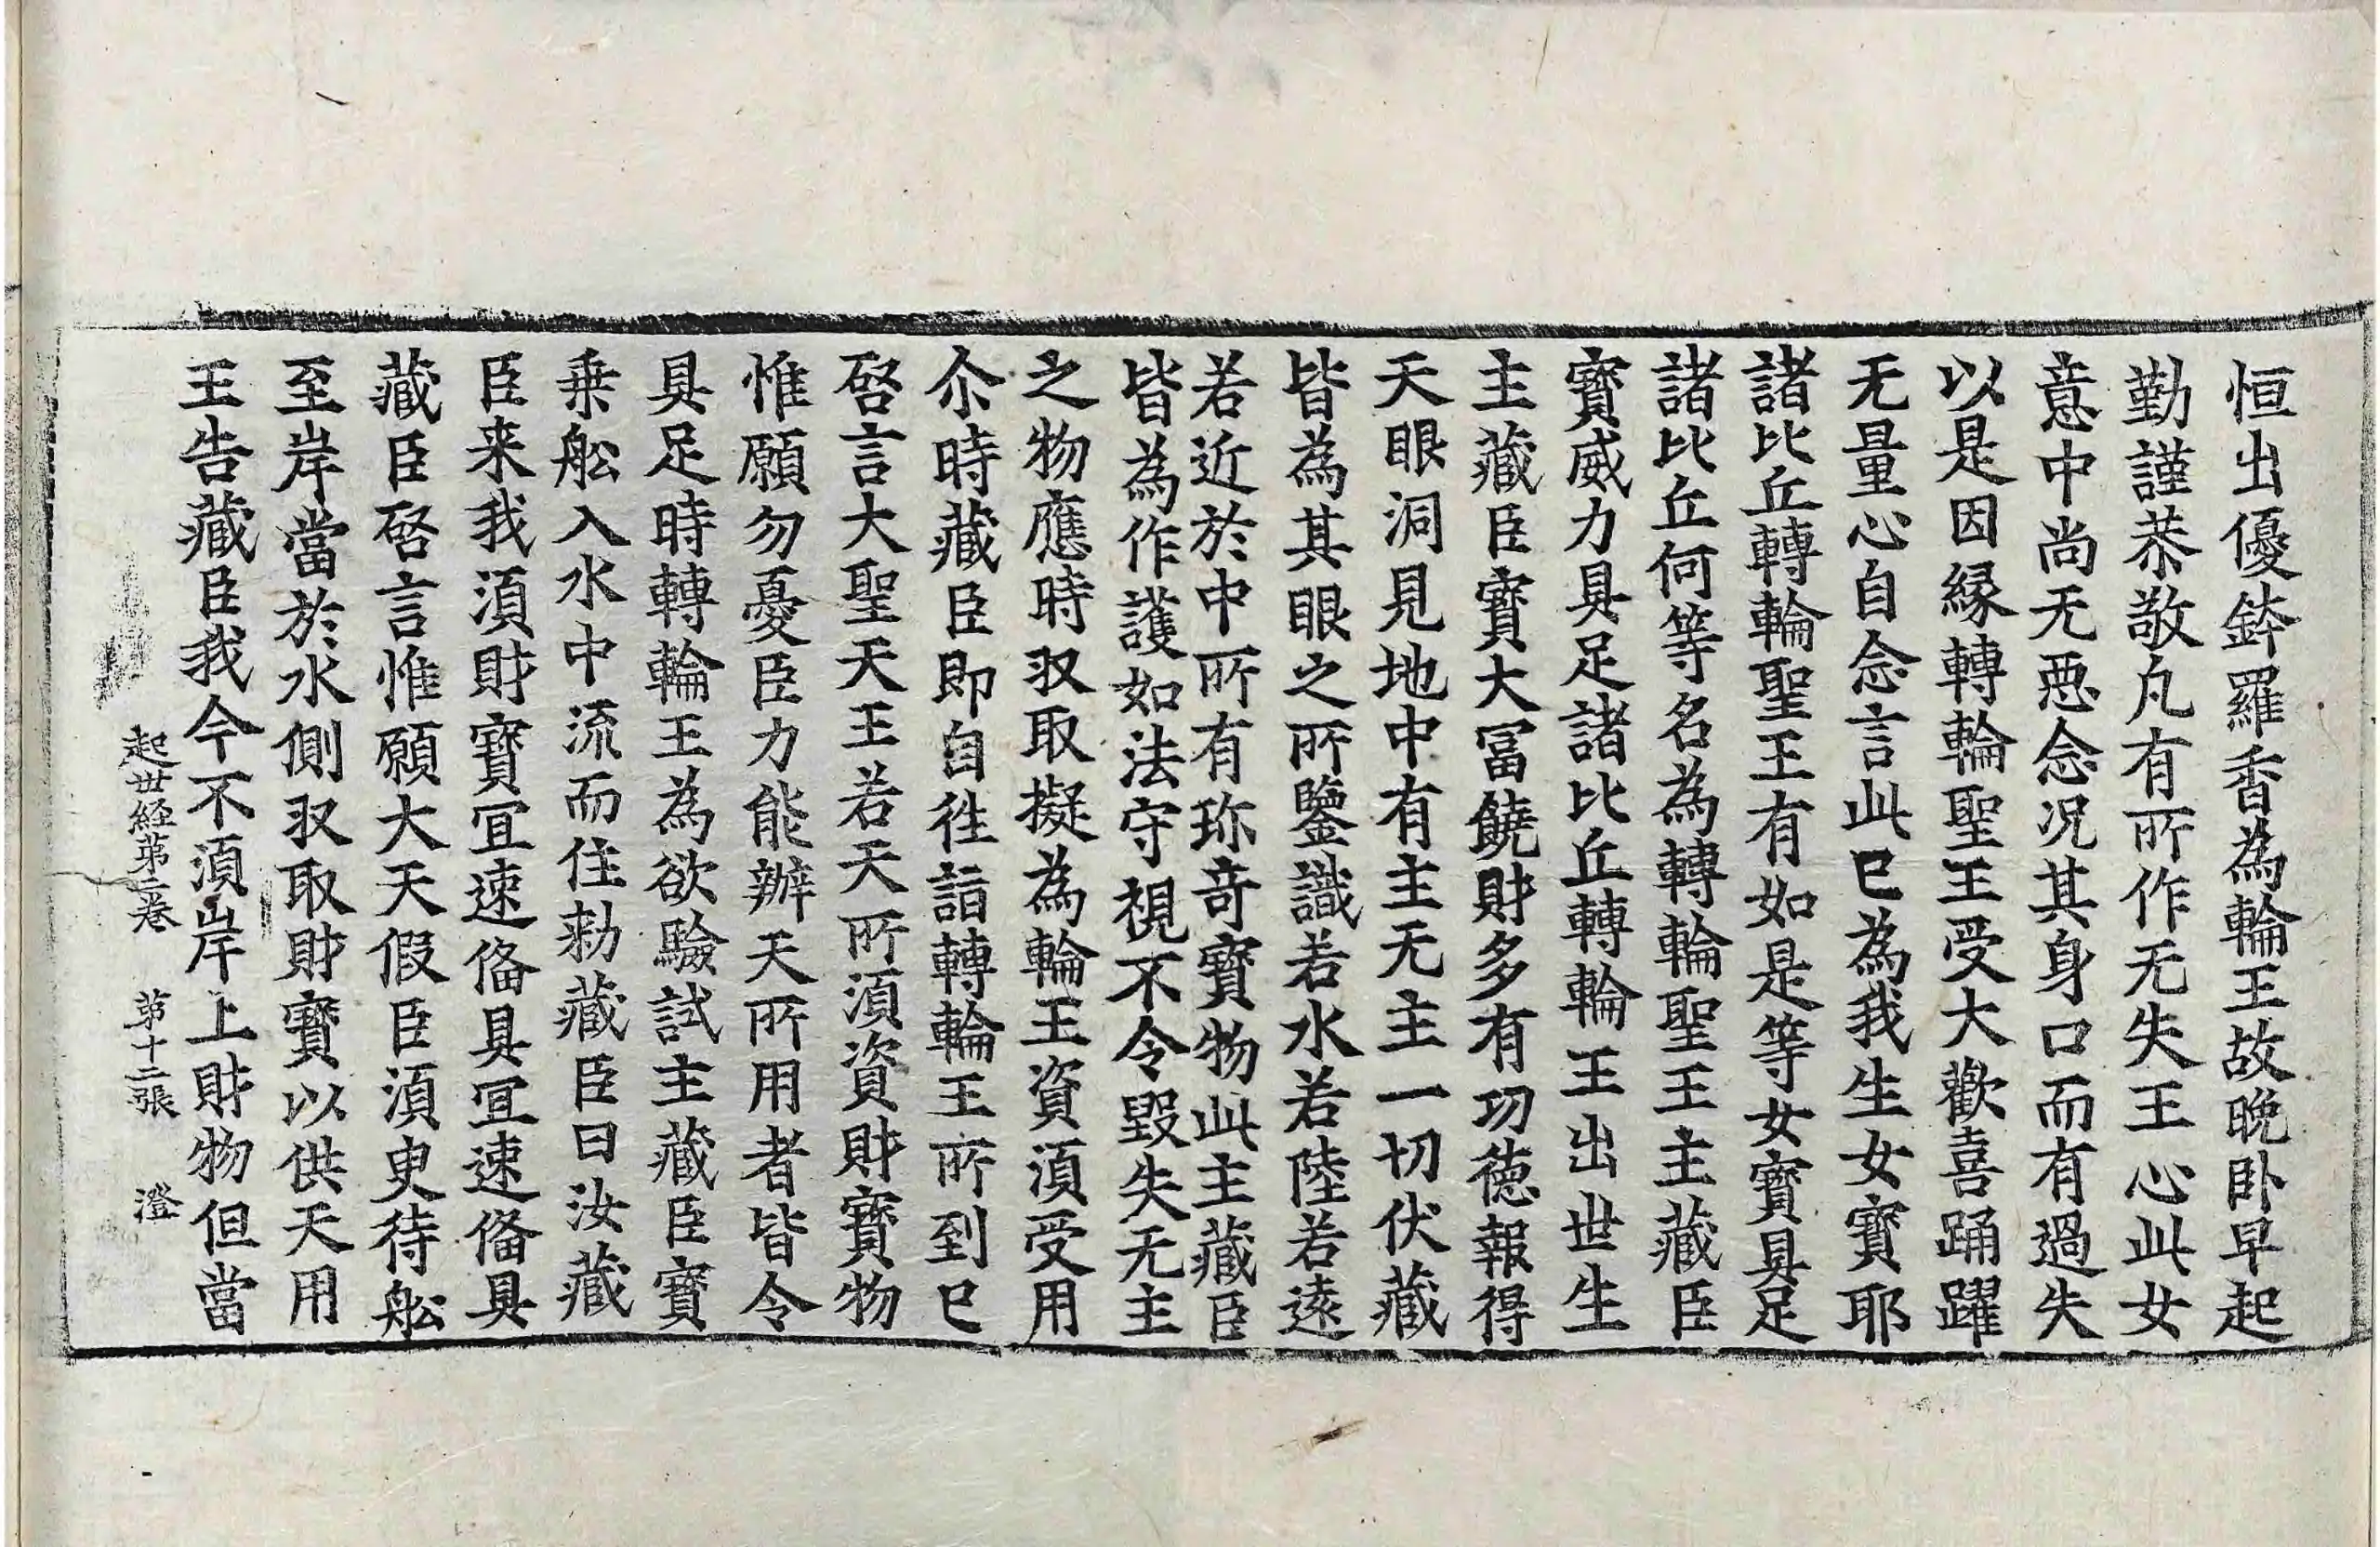 恒出優鉢羅香為輪王故晩卧早起
勤謹恭敬凡有所作无失王心此女
意中尚无惡念况其身口而有過失
以是因縁轉輪聖王受大歡喜踊躍
无量心自念言此已為我生女寶耶
諸比丘轉輪聖王有如是等女寶具足
諸比丘何等名為轉輪聖王主藏臣
寶威力具足諸比丘轉輪王出世生
主藏臣寶大冨饒財多有功德報得
天眼洞見地中有主无主一切伏藏
皆為其眼之所鑒識若水若陸若遠
若近於中所有珎奇寶物此主藏臣
皆為作護如法守視不令毀失无主
之物應時収取擬為輪王資湏受用
尒時藏臣即自徃詣轉輪王所到已
啓言大聖天王若天所湏資財寶物
惟願勿憂臣力能辦天所用者皆令
具足時轉輪王為欲驗試主藏臣寶
乗舩入水中流而住勑藏臣曰汝藏
臣来我湏財寶冝速俻具冝速俻具
藏臣啓言惟願大天假臣湏臾待舩
至岸當於水側収取財寶以供天用
王告藏臣我今不湏岸上財物但當
起世經第二卷 第十二張 澄